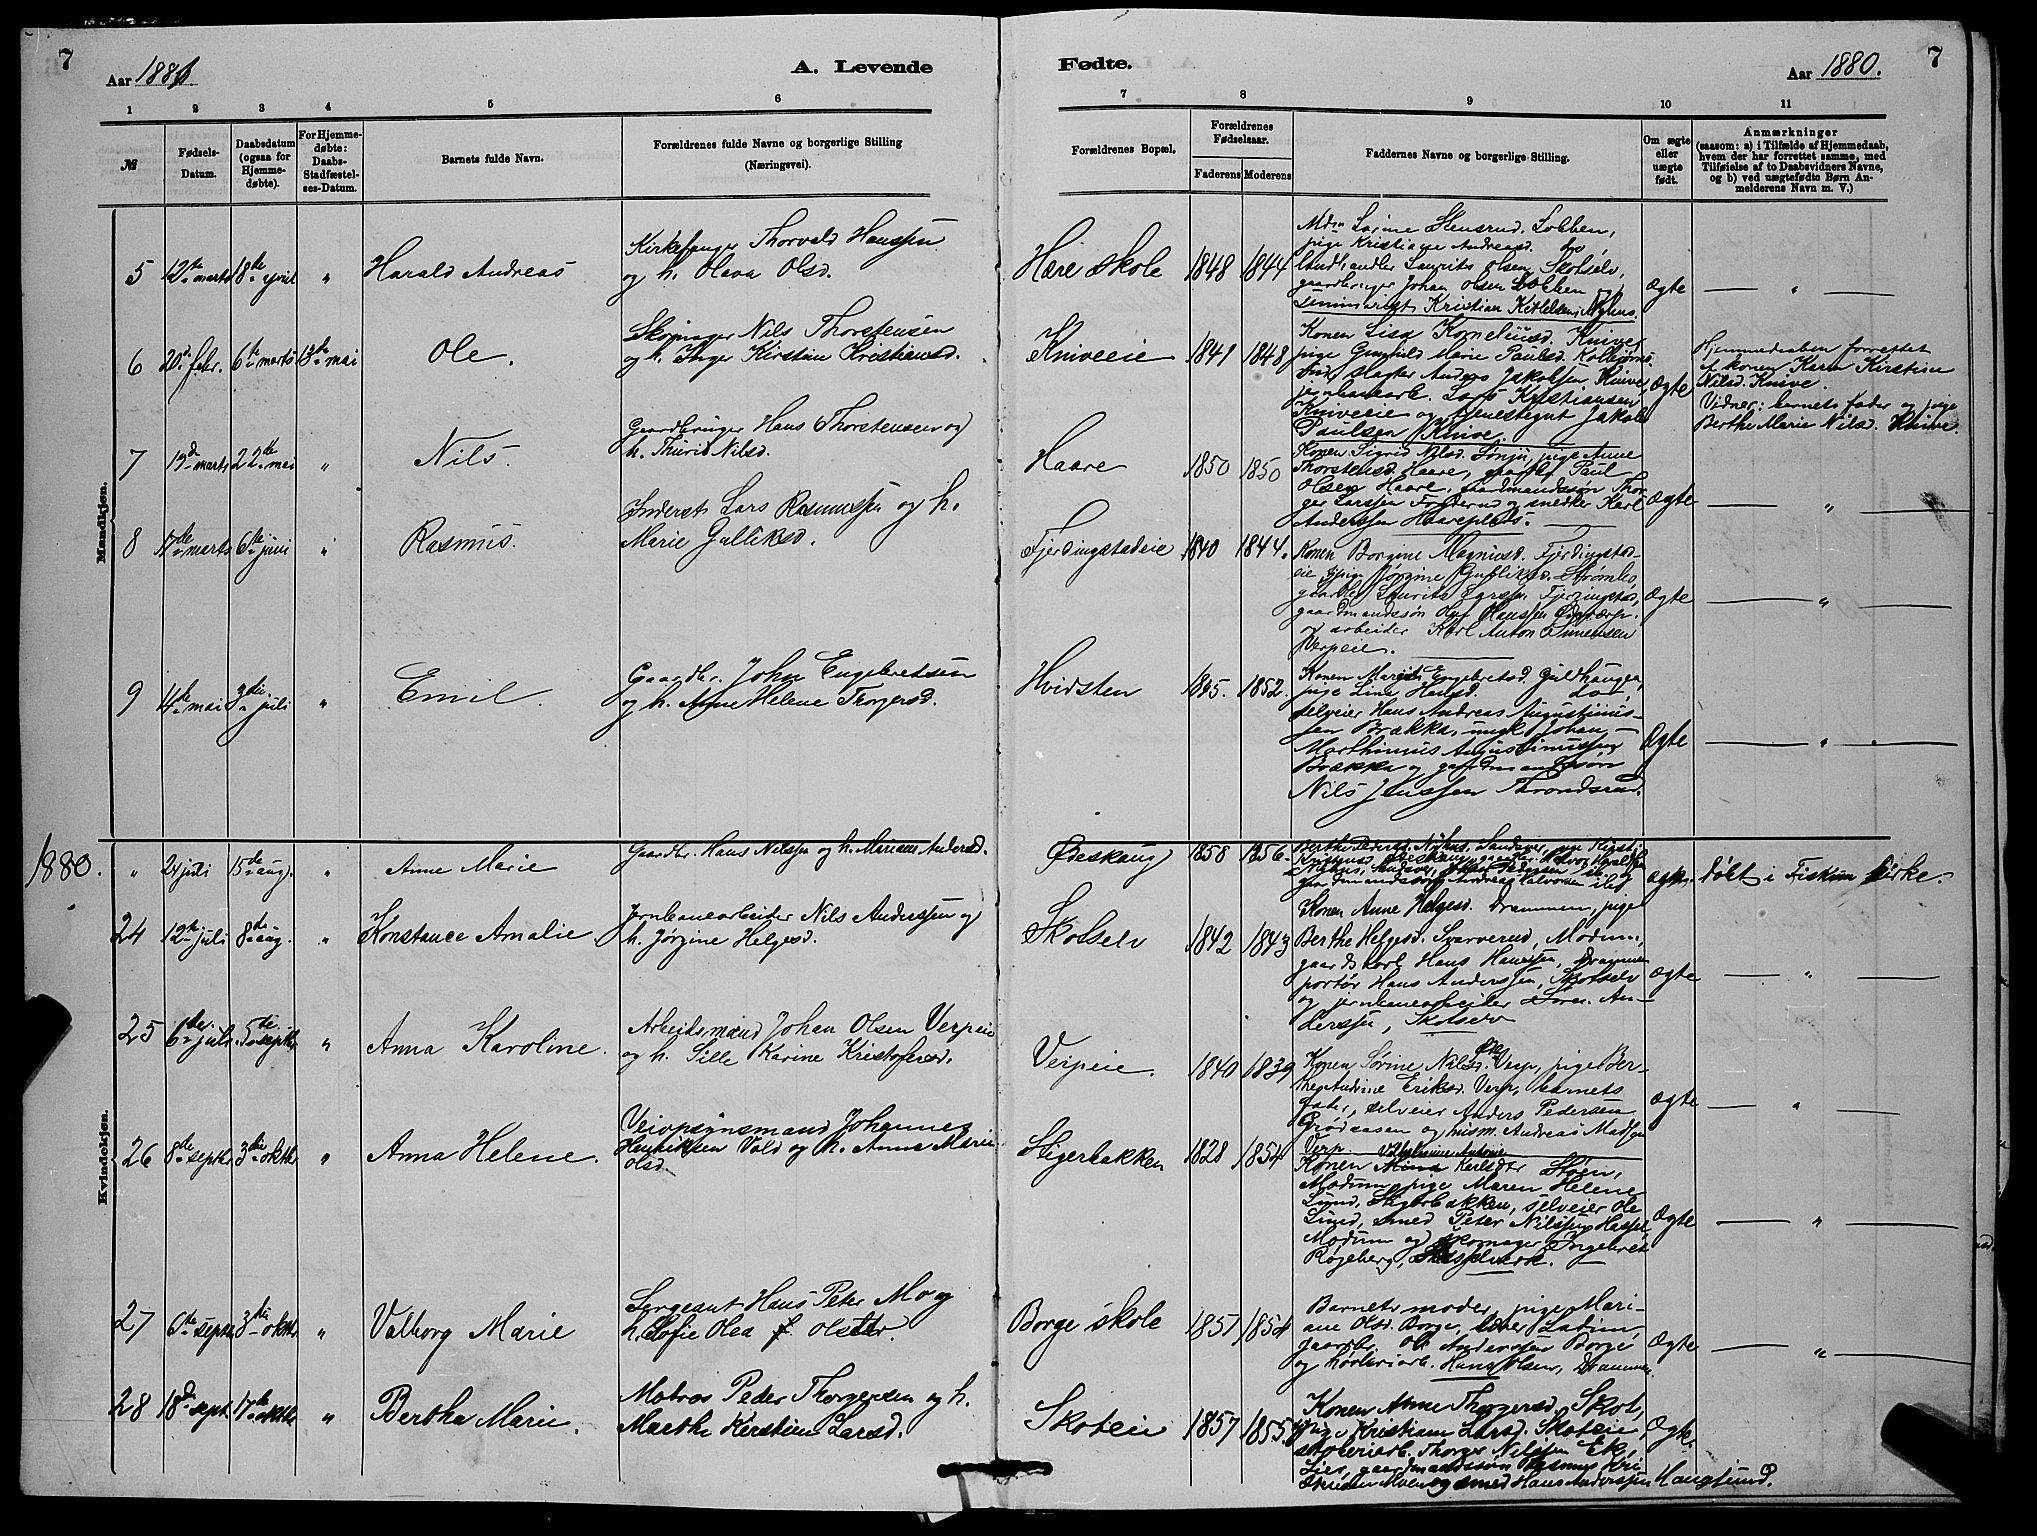 7
Aar 1881
A. Levende
Fødte.
Aar 1880.
7
1 2 3 4 5 6 7 8 9 10 11
№
Fødsels-
Datum.
Daabsdatum
(ogsaa for
Hjemme-
døbte).
For Hjemme-
døbte:
Daabs-
Stadfæstel-
ses-Datum.
Barnets fulde Navn.
Forældrenes fulde Navne og borgerlige Stilling
(Næringsvei).
Forældrenes Bopæl.
Forældrenes
Fødselsaar.
Faderens Moderens
Faddernes Navne og borgerlige Stilling.
Om ægte
eller
uægte
født.
Anmærkninger
(saasom: a) i Tilfælde af Hjemmedaab,
hvem der har forrettet samme, med
Tilføielse af to Daabsvidners Navne,
og b) ved uægtefødte Børn An-
melderens Navn m. V.)
Mandkjøn.
5 12te marts 18de april " Harald Andreas
Kirkesanger Thorvald Hanssen
og h. Olava Olsd.
Hære skole 1848 1844
Sørine Stensrud, Lobben,
pige Kristiane Andreasd. do,
landhandler Laurits Olsen Skotselv,
gaardbruger Johan Olsen Lobben
seminarist Kristian Kittelsen, Myhus.
Ægte — " —
6 20de febr. 6te marts 13de mai Ole.
Skomager Nils Thorstensen
og h. Inger Kirstine Kristiansd.
Kniveeie 1841 1848
Konen Lisa Korneliusd. Knive,
pige Gunhild Marie Paulsd. Kolbjørns-
rud, slagter Anders Jakobsen Knive,
jernbanearb. Lars Kristiansen
Kniveeie og tjenestegut Jakob
Paulsen Knive.
Ægte
Hjemmedaaben forrettet
af konen Karen Kirstine
Nilsd. Knive.
Vidner: barnets fader og pige
Berthe Marie Nilsd. Knive.
7 19de marts 22de mai " Nils.
Gaardbruger Hans Thorstensen og
h. Thurid Nilsd.
Haare 1850 1850
Konen Sigrid Nilsd. Sønju, pige Anne
Thorstensd. Haare, Paul
Olsen Haare, gaardmandssøn Thor-
ger Larssen og snedker Karl
Anderssen Haareplads.
Ægte — " —
8 17de marts 6te juni " Rasmus.
Inderst Lars Rasmussen og h.
Marie Gulliksd.
Fjerdingstadeie 1840 1844.
Konen Borgine Magnusd. Fjerdingstad-
eie, pige Jørgine Gulliksd. Strømbo,
gaardbr. Laurits Larssen Fjerdingstad,
gaardmandssøn Olaf Hanssen
og arbeider Karl Anton Simensen
Verpeie.
Ægte — " —
9 14de mai 3die juli " Emil.
Gaardbr. John Engebretsen
og h. Anne Helene Thorgersd.
Hvidsten 1825. 1852.
Konen Engebretsd. Guldhaugen,
pige Lina Hansd. do,
selveier Hans Andreas Augustinus-
sen Brække, ungk. Johan
Marthinius Augustinussen
Brække og gaardmandssøn
Nils Jenssen Throndsrud.
Ægte — " —
1880.
Kvindekjøn.
" 24 juli 15de aug. " Anne Marie
Gaardbr. Hans Nilssen og h. Mariane Andersd.
Ødeskaug 1858 1856.
Berthe Pedersd. Nyhus, Sandsvær,
Ødeskaug, gaardbr. Halvor
Nyhus, Sandsvær, Johan Pedersen ib. og
gaardmandssøn Andreas Halvorsen ibid.
ægte. døbt i Fiskum kirke.
24 12te juli 8de aug. " Konstance Amalie
Jernbanearbeider Nils Anderssen og
h. Jørgine Helgesd.
Skotselv 1842 1843
Konen Anne Helgesd. Drammen, pige
Berthe Helgesd. Svarverud, Modum,
gaardskarl Hans Hanssen, Drammen
portør Hans Anderssen, Skotselv
og jernbanearbeider Søren An-
derssen, Skotselv
Ægte — " —
25 6te juli 5te septbr " Anna Karoline.
Arbeidsmand Johan Olsen Verpeie
og h. Sille Karine Kristofersd.
Verpeie. 1840 1839
Konen Sørine Nilsd. Verp, pige Ber-
the Andrine Eriksd. Verp, barnets
fader, selveier Anders Pedersen
Grødsaasen og husm. Andreas Madssen
Verp.
Ægte — " —
26 8de septbr 3die oktbr " Anna Helene.
Veiopsynsmand Johannes
Henriksen Vold og h. Anne Marie
Olsd.
Stigerbakken 1828 1854
Vilhelmine Antonie
Konen Karlsdtr Støen,
Modum, pige Maren Helene
Lund, Stigerbakken, selveier Ole
Lund, smed Peter Nilssen Hassel,
Modum og skomager Ingebret
Røgeberg,
Ægte — " —
27 6te septbr 3die oktbr " Valborg Marie
Sergeant Hans Peter Mo og
h. Sofie Olea Olsdtr.
Borge skole 1857 1854
Barnets moder, pige Mari-
ane Olsd. Borge,
gaardbr. Ole Anderssen Borge
og Hans Olsen, Drammen
Ægte — " —
28 18de septbr 17de oktbr " Bertha Marie.
Matros Peder Thorgersen og h.
Marthe Kirstine Larsd.
Skoteie 1857 1855
Konen Anne Thorgersd. Skot,
pige Kristiane Larsd. Skoteie,
Thorger Nilssen Ek,
Lier, gaardmandssøn Rasmus Kri-
stensen og smed Hans Anderssen Haugsund.
Ægte.